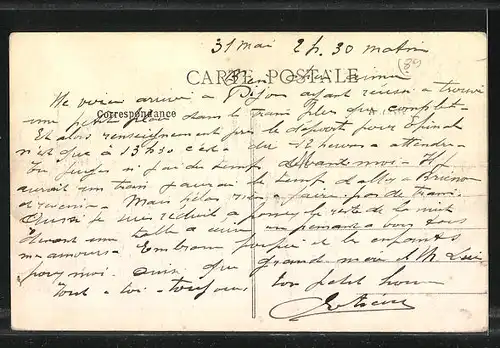 31 mai 2h.30 matin
89
CARTE POSTALE
Bien chère aimée
Me voici arrivé à Dijon ayant réussi à trouver
une petite place dans le train plus que complet
Correspondance
Et alors renseignement pris le départ pour Epinal
n'est que à 13h30 c'est heures attendre
Tu juges si j'ai le temps devant moi
aurait un train j'aurai le temps d'aller à
et revenir Mais hélas rien à faire pas de train
Aussi je suis réduit à passer le reste de la nuit
devant une table à en pensant à vous tous
mes amours Embrasse et les enfants
pour moi ainsi que grand mère et M.
Tout à toi toujours ton petit homme